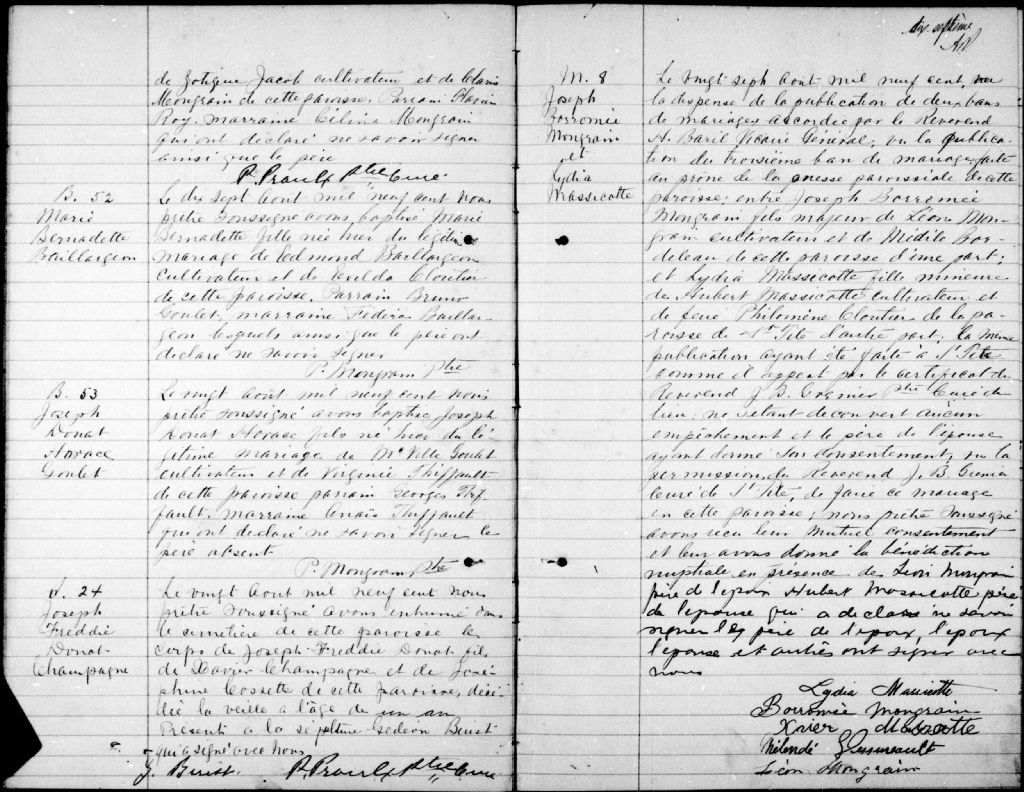 de Zotique Jacob cultivateur et de Clara
Mongrain de cette paroisse. Parrain Flavien
Roy. marraine Célina Mongrain
qui ont déclaré ne savoir signer
ainsi que le père
P. Proulx Ptre Curé.
B. 52
Marie
Bernadette
Baillargeon
Le dix sept août mil neuf cent nous
prêtre soussigné avons baptisé Marie
Bernadette fille née hier du légitime
mariage de Edmond Baillargeon
cultivateur et de Exilda Cloutier
de cette paroisse. Parrain Bruno
Goulet, marraine Fédéra Baillar-
geon lesquels ainsi que le père ont
déclaré ne savoir signer
P. Mongrain Ptre
B. 53
Joseph
Donat
Horace
Goulet
Le vingt août mil neuf cent nous
prêtre soussigné avons baptisé Joseph
Donat Horace fils né hier du lé-
gitime mariage de Nville Goulet
cultivateur et de Virginie Thiffault
de cette paroisse parrain Georges Thif-
fault, marraine Anaïs Thiffault
qui ont déclaré ne savoir signer le
père absent
P. Mongrain Ptre
S. 24
Joseph
Freddie
Donat
Champagne
Le vingt août mil neuf cent nous
prêtre soussigné avons inhumé dans
le cimetière de cette paroisse le
corps de Joseph Freddie Donat fils
de Xavier Champagne et de José-
phine Cossette de cette paroisse, décé-
dé la veille a l'âge de un an
Présent a la sépulture Gedeon Buist
qui a signé avec nous
G. Buist. P. Proulx Ptre Curé
dix septième
M. 8
Joseph
Borromée
Mongrain
et
Lydia
Massicotte
Le vingt sept août mil neuf cent, vu
la dispense de la publication de deux bans
de mariages accordée par le Reverend
H. Baril Vicaire Général; vu la publica-
tion du troisième ban de mariage faite
au prône de la messe paroissiale de cette
paroisse; entre Joseph Borromée
Mongrain fils majeur de Léon Mon-
grain cultivateur et de Médite Bor-
deleau de cette paroisse d'une part;
et Lydia Massicotte fille mineure
de Hubert Massicotte cultivateur et
de feue Philomène Cloutier de la pa-
roisse de St Tite d'autre part; la même
publication ayant été faite à St Tite
comme il appert par le certificat du
Reverend J. B. Grenier Ptre Curé du
lieu; ne s'étant découvert aucun
empêchement et le père de l'épouse
ayant donné son consentement, vu la
permission du Reverend J. B. Grenier
Curé de St Tite, de faire ce mariage
en cette paroisse; nous prêtre soussigné
avons reçu leur mutuel consentement
et leur avons donné la bénédiction
nuptiale en présence de Léon Mongrain
père de l'époux Hubert Massicotte père
de l'épouse qui a déclaré ne savoir
signer les père de l'époux, l'époux
l'épouse et autres ont signer avec
nous
Lydia Massicotte
Borromée Mongrain
Xavier Massicotte
Léon Mongrain